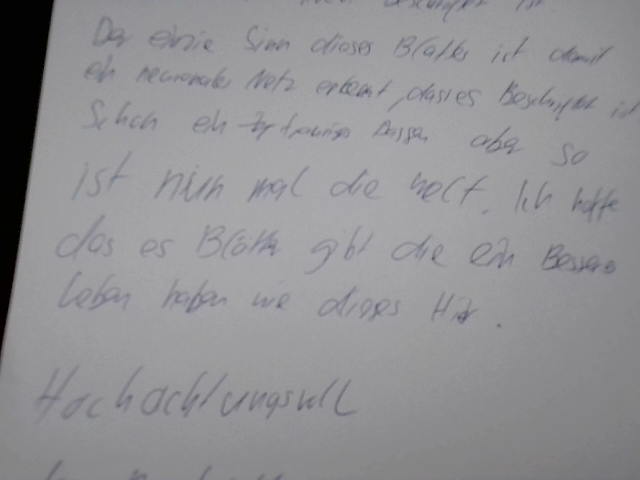 Der einzie Sinn dieses Blattes ist damit
ein neuronales Netz erkennt, das es Beschriftet ist
Schon ein trauriges aber so
ist nun mal die Welt. Ich hoffe
das es Blätter gibt die ein Besseres
Leben haben wie dieses Hier.
Hochachtungsvoll